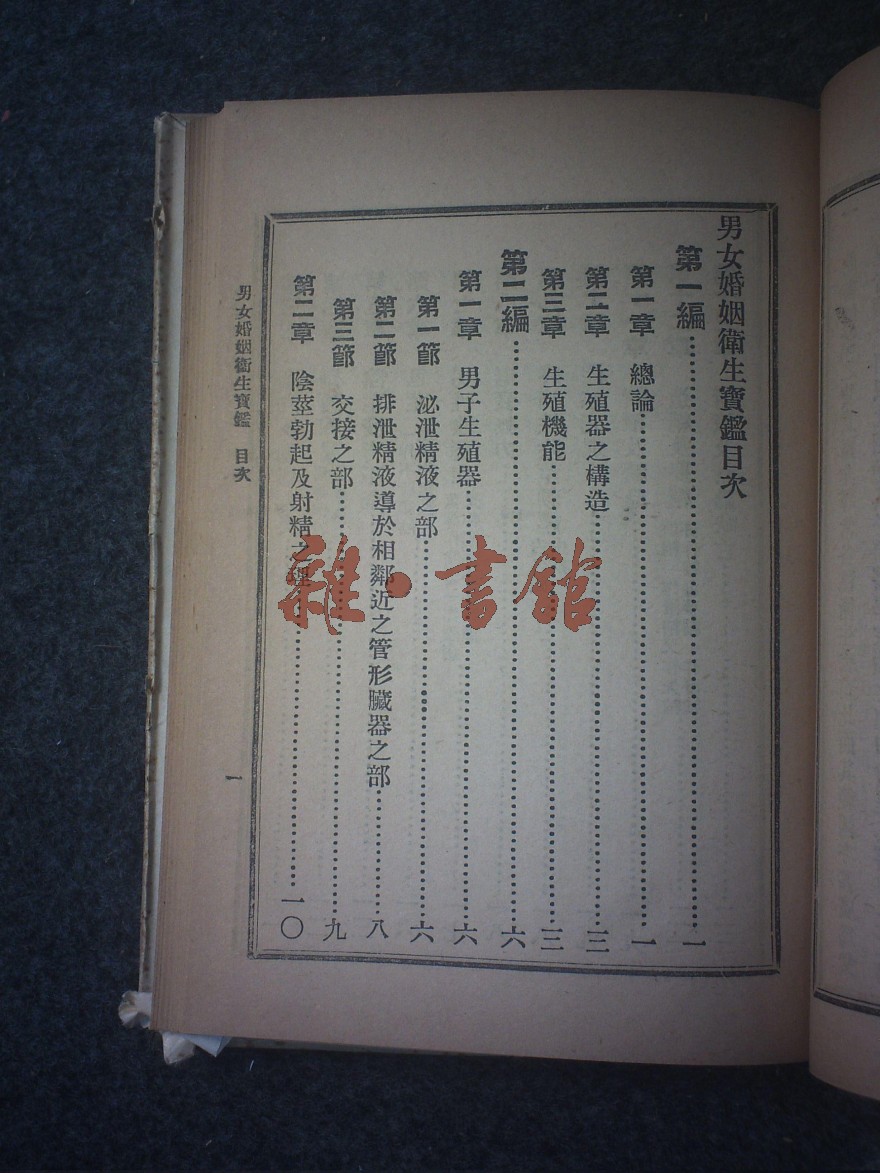 男女婚姻衛生寶鑑目次
第一編……一
第一章　總論……一
第二章　生殖器之構造……三
第三章　生殖機能……三
第二編……六
第一章　男子生殖器……六
第一節　泌泄精液之部……六
第二節　排泄精液導於相鄰近之管形臟器之部……八
第三節　交接之部……九
第二章　陰莖勃起及射精之……一〇
男女婚姻衛生寶鑑　目次
一
雜·書館